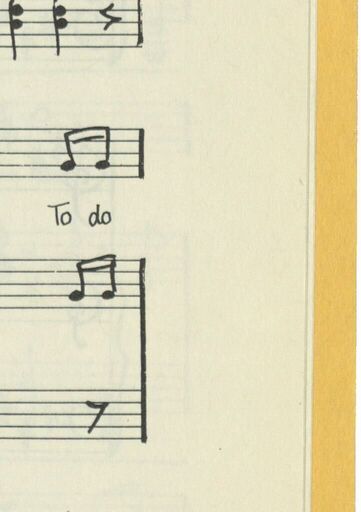 To do